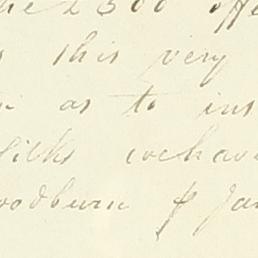 the £300 offe
this very
as to ins
silks we hav
oodburn & Ja